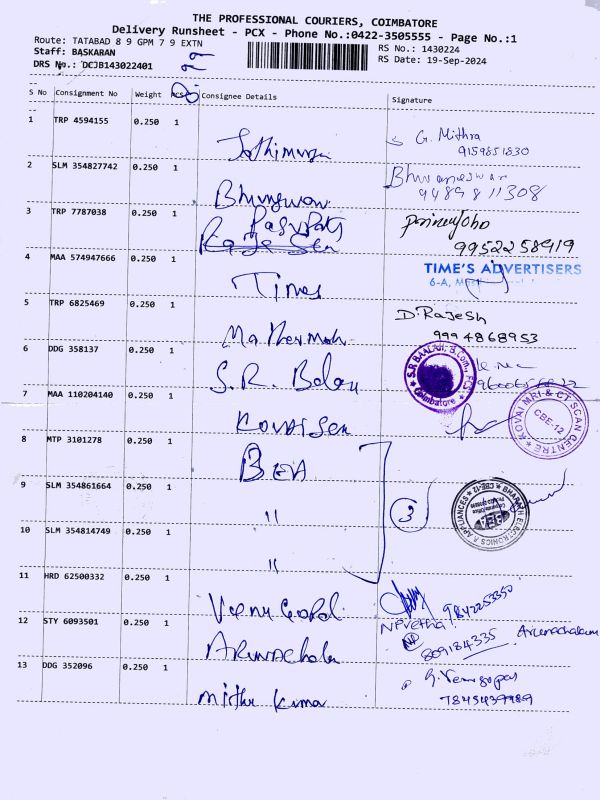 THE PROFESSIONAL COURIERS, COIMBATORE
Delivery Runsheet - PCX - Phone No.:0422-3505555 - Page No.:1
Route: TATABAD 8 9 GPM 7 9 EXTN
RS No.: 1430224
Staff: BASKARAN
RS Date: 19-Sep-2024
DRS No.: DCJB143022401
S No Consignment No Weight PCS Consignee Details Signature
1 TRP 4594155 0.250 1 G. Mithra
9159851830
2 SLM 354827742 0.250 1 Bhuvaneswar
9489811308
3 TRP 7787038 0.250 1
9952258919
4 MAA 574947666 0.250 1 Times TIME'S ADVERTISERS
6-A,
5 TRP 6825469 0.250 1 D. Rajesh
9994868953
6 DDG 358137 0.250 1 S.R. Balau S.R BAALAJI, B.Com., FCA Coimbatore
7 MAA 110204140 0.250 1 Kovai Scan KOVAI MRI & CT SCAN CENTRE CBE-12
8 MTP 3101278 0.250 1 BEA
9 SLM 354861664 0.250 1 " 3 BHARATH ELECTRONICS & APPLIANCES CBE-12 BEA
10 SLM 354814749 0.250 1 "
11 HRD 62500332 0.250 1 Venu Gopal 9842253350
12 STY 6093501 0.250 1 Arunachala NPretha
NP 809184335 Arunachalam
13 DDG 352096 0.250 1 Mithu Kumar G. Venugopal
7845439989